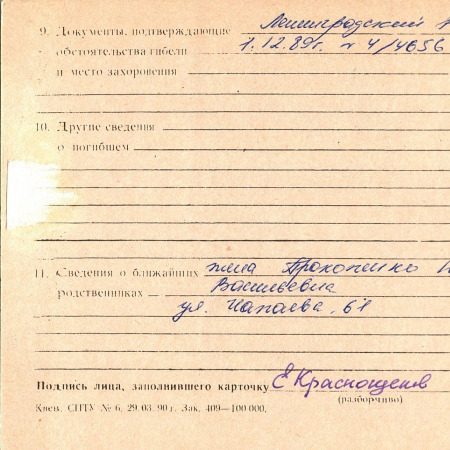 9. Документы, подтверждающие Ленинградский
обстоятельства гибели 1.12.89г. № 4/4656
и место захоронения
10. Другие сведения
о погибшем
11. Сведения о ближайших жена Прокопенко
родственниках — Васильевна
ул. Чапаева, 61
Подпись лица, заполнившего карточку Е Краснощеков
(разборчиво)
Киев. СПТУ № 6, 29.03.90 г. Зак. 409—100,000.